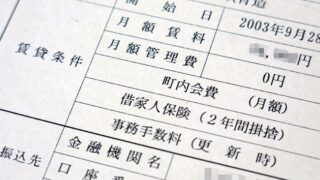 開始日 2003年9月28
賃貸条件
月額賃料 円
月額管理費 0円
町内会費 (月額)
借家人保険(2年間掛捨)
事務手数料(更新時)
振込先
金融機関名
口座番